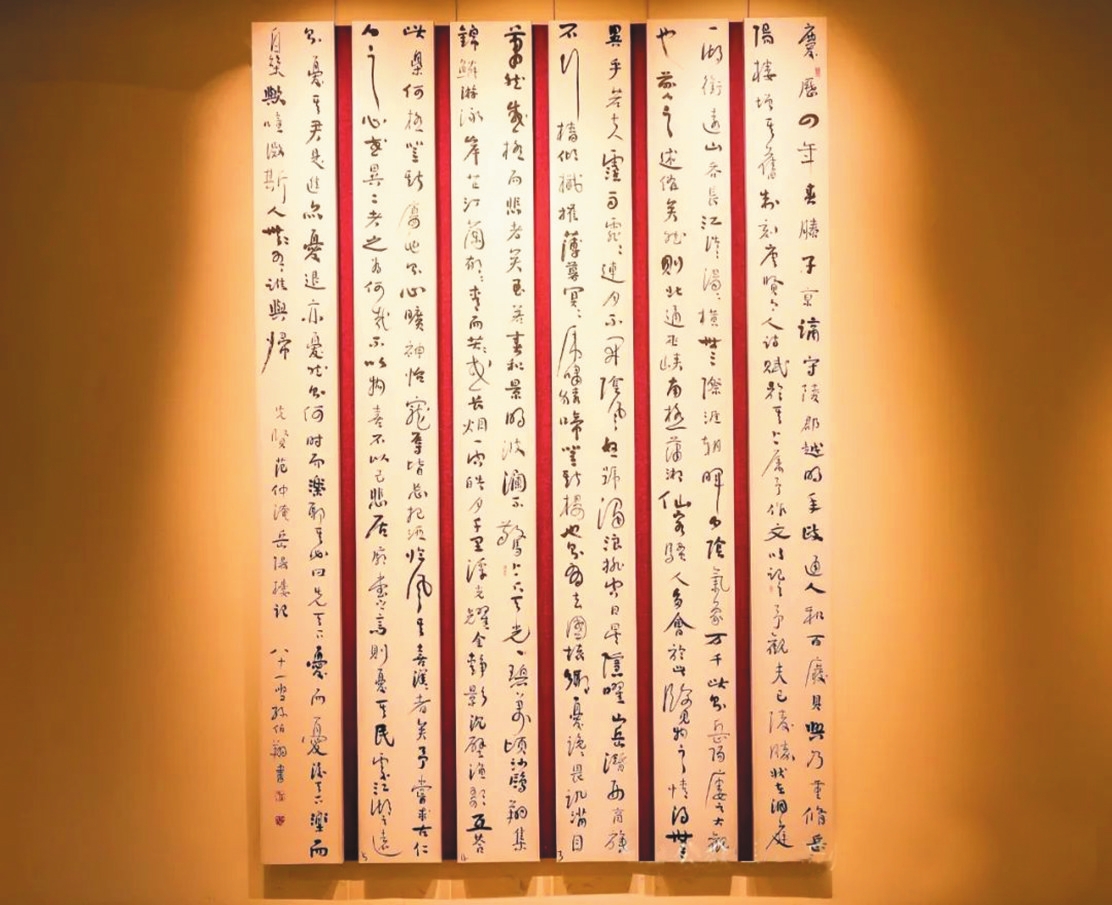 慶歷四年春滕子京謫守陵郡越明年政通人和百廢具興乃重脩岳
陽樓增其舊制刻唐賢今人詩賦於其上屬予作文以記之予觀夫巴陵勝狀在洞庭
一湖銜遠山吞長江浩浩湯湯橫無際涯朝暉夕陰氣象万千此則岳陽樓之大觀
也前人之述備矣然則北通巫峽南極瀟湘仙客騷人多會於此覽物之情得無
異乎若夫霪雨霏霏連月不開陰風怒號濁浪排空日星隱曜山岳潛形商旅
不行檣傾檝摧薄暮冥冥虎嘯猿啼登斯樓也則有去國懷鄉憂讒畏譏滿目
蕭然感極而悲者矣至若春和景明波瀾不驚上下天光一碧萬頃沙鷗翔集
錦鱗游泳岸芷汀蘭郁郁青青而或長烟一空皓月千里浮光耀金静影沉璧漁歌互答
此樂何極登斯樓也則心曠神怡寵辱皆忘把酒臨風其喜洋洋者矣予嘗求古仁
人之心或異二者之為何哉不以物喜不以己悲居廟堂之高則憂其民處江湖之遠
則憂其君是進亦憂退亦憂然則何時而樂耶其必曰先天下憂而憂後天下樂而
自樂歟噫微斯人無吾誰與歸 先賢范仲淹岳陽樓記 八十一叟孫伯翔書